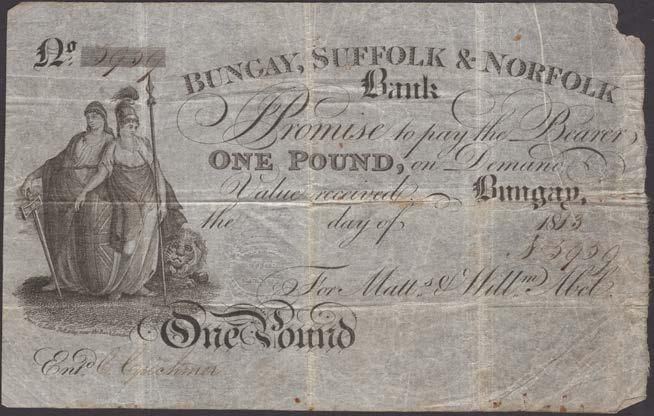 No. 5959
BUNGAY, SUFFOLK & NORFOLK
Bank
Promise to pay the Bearer,
ONE POUND, on Demand
Value received. Bungay,
the day of 1813
5959
For Matt.s & Will.m Abel.
One Pound
Ent.d